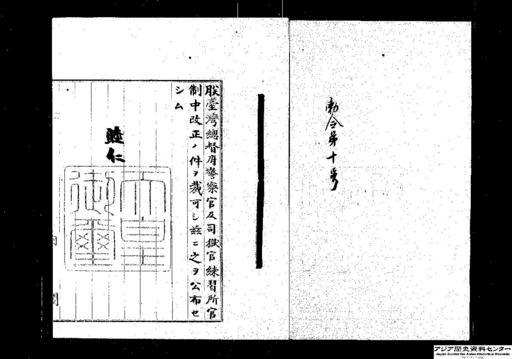 勅令第十号
朕臺灣總督府警察官及司獄官練習所官
制中改正ノ件ヲ裁可シ茲ニ之ヲ公布セ
シム
睦仁
天皇
御璽
アジア歴史資料センター
Japan Center for Asian Historical Records